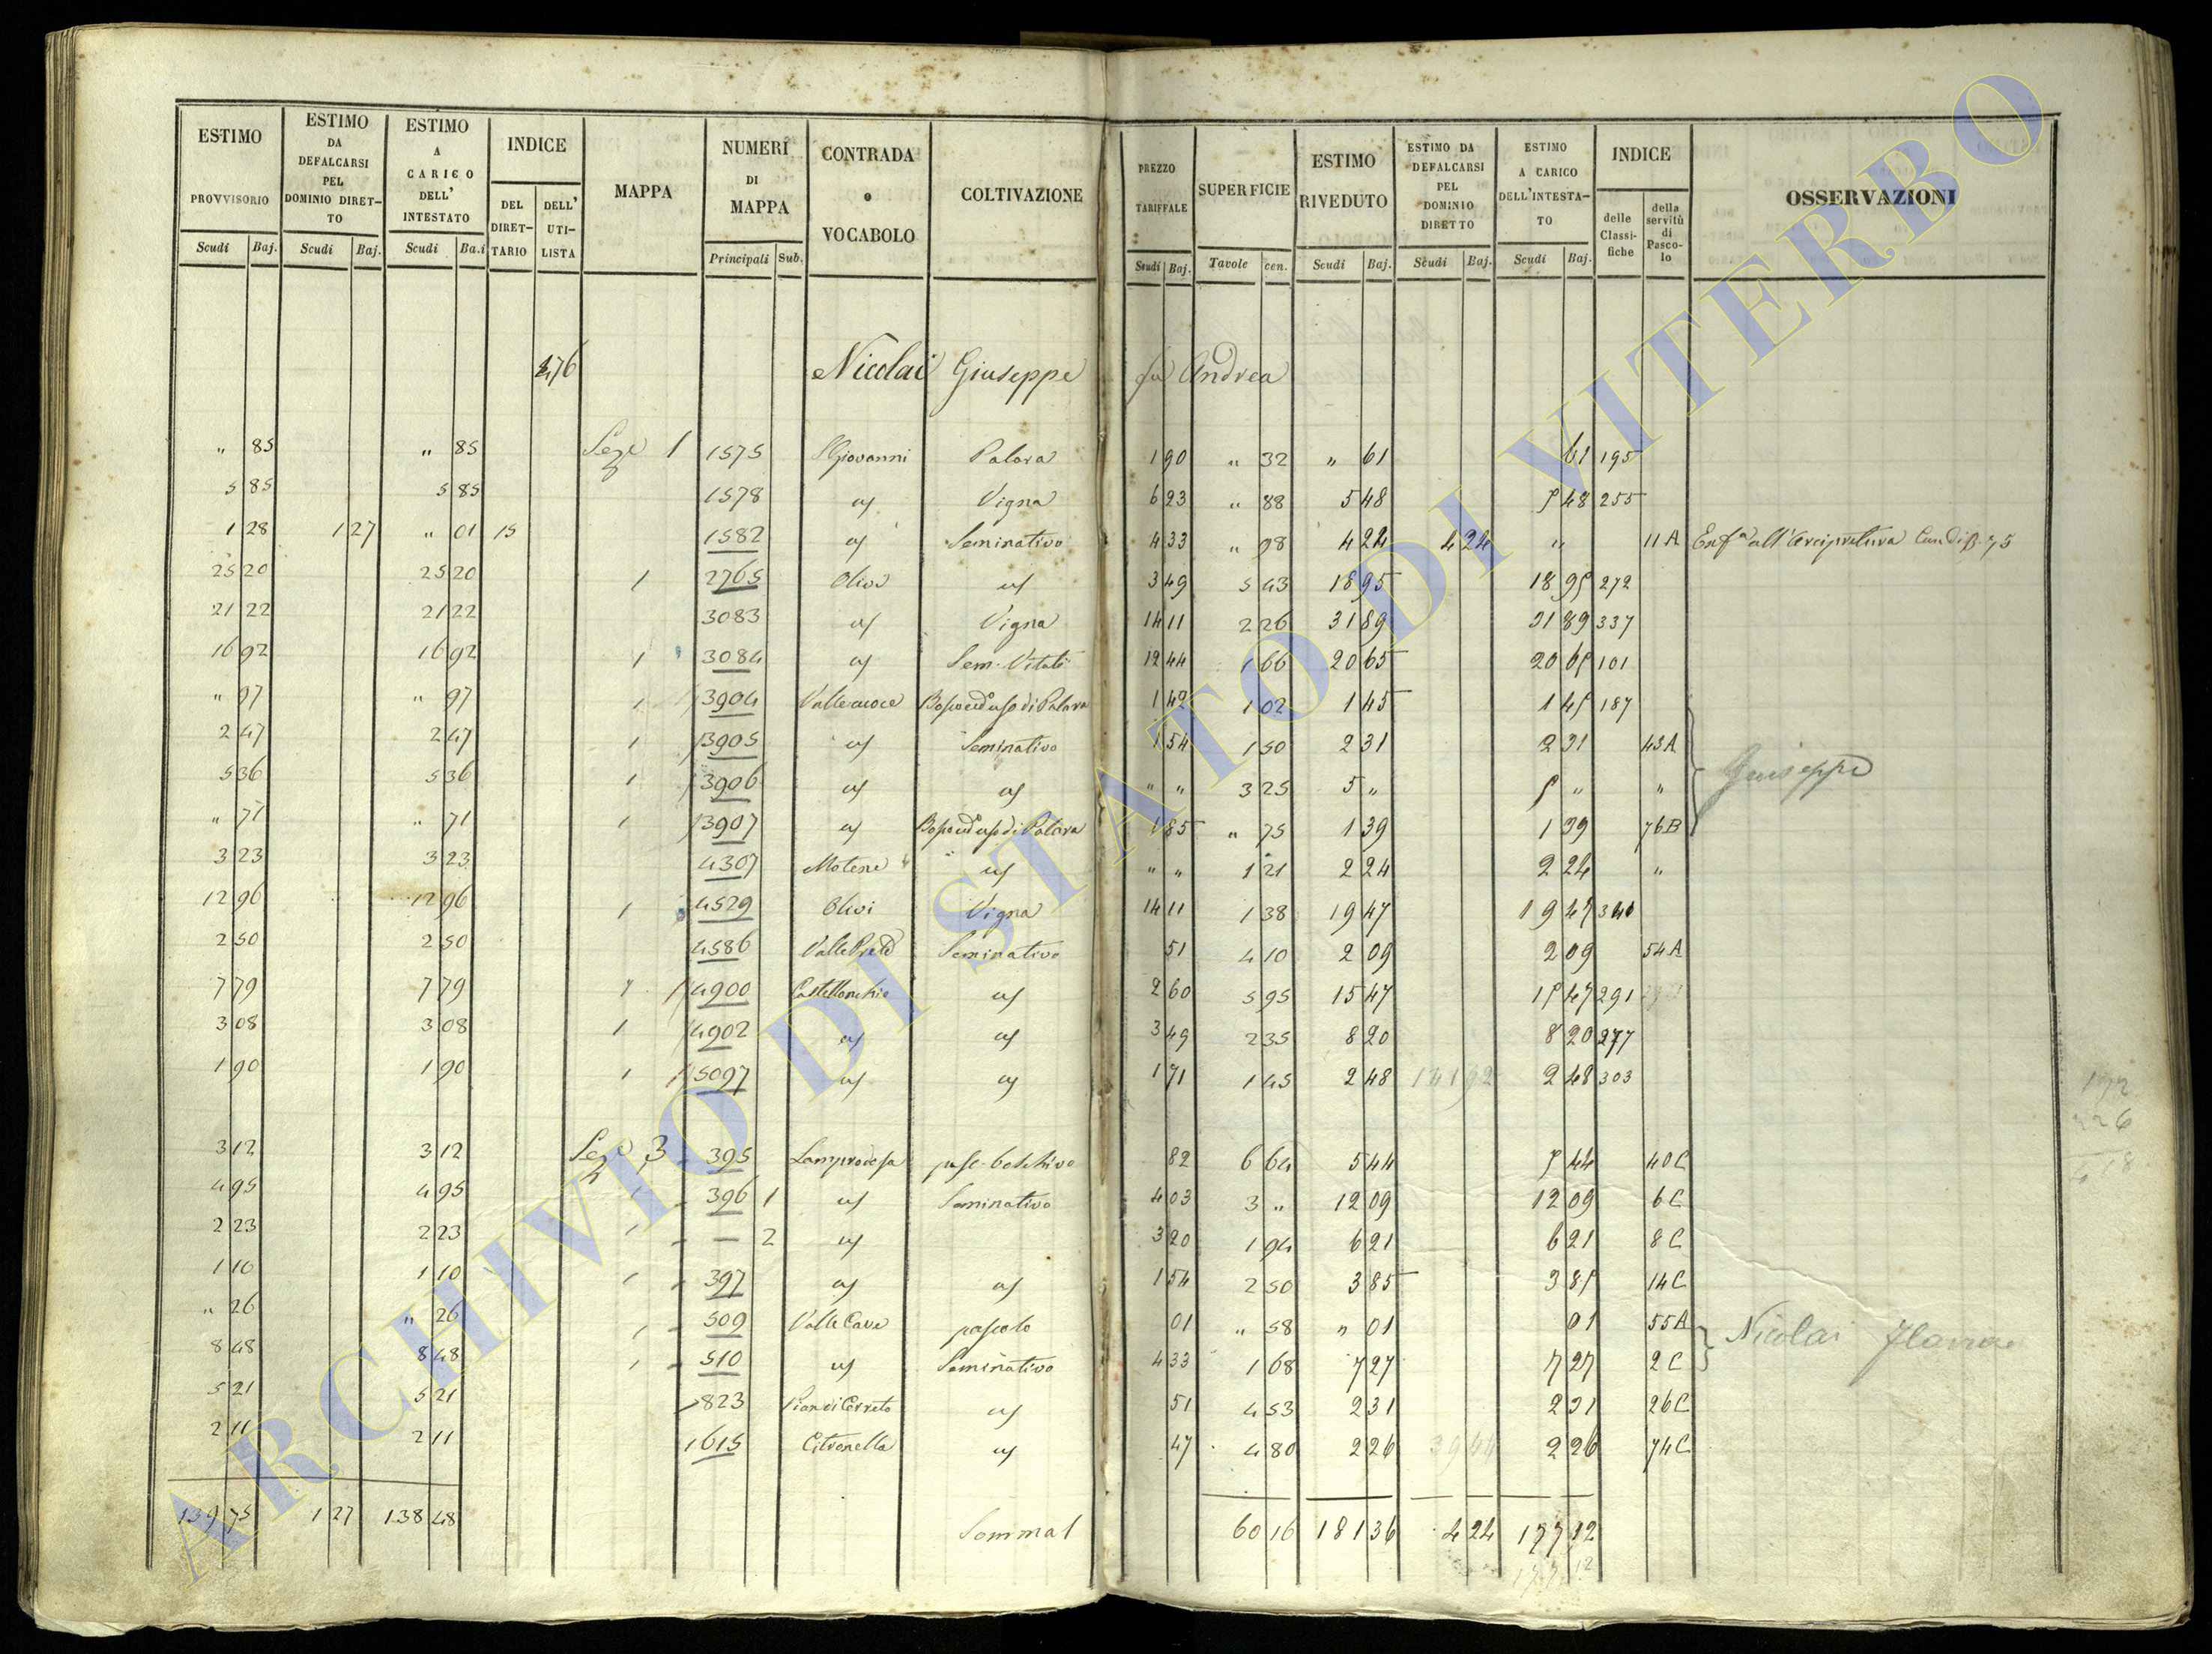 ESTIMO PROVVISORIO Scudi Baj. | ESTIMO DA DEFALCARSI PEL DOMINIO DIRET-TO Scudi Baj. | ESTIMO A CARICO DELL' INTESTATO Scudi Ba.i | INDICE DEL DIRET-TARIO DELL' UTI-LISTA | MAPPA | NUMERI DI MAPPA Principali Sub. | CONTRADA o VOCABOLO | COLTIVAZIONE | PREZZO TARIFFALE Scudi Baj. | SUPERFICIE Tavole cen. | ESTIMO RIVEDUTO Scudi Baj. | ESTIMO DA DEFALCARSI PEL DOMINIO DIRETTO Scudi Baj. | ESTIMO A CARICO DELL'INTESTA-TO Scudi Baj. | INDICE delle Classi-fiche della servitù di Pasco-lo | OSSERVAZIONI
476 Nicolai Giuseppe fu Andrea
" 85 " 85 Seze 1 1575 S Giovanni Palara 1 90 " 32 " 61 61 195
5 85 5 85 1578 uf Vigna 6 23 " 88 5 48 5 48 255
1 28 1 27 " 01 15 1582 uf Seminativo 4 33 " 98 4 24 4 24 " 11 A Enfa all'Arcipretura
25 20 25 20 1 2765 Olivi uf 3 49 5 43 18 95 18 95 272
21 22 21 22 3083 uf Vigna 14 11 2 26 31 89 31 89 337
16 92 16 92 1 3084 uf Sem. Vitati 12 44 1 66 20 65 20 65 101
" 97 " 97 1 3904 Vallecuoce di Palara 1 42 1 02 1 45 1 45 187
2 47 2 47 1 3905 uf Seminativo 1 54 1 50 2 31 2 31 43 A
5 36 5 36 1 3906 uf uf " " 3 25 5 " 5 " " Giuseppe
" 71 " 71 1 3907 uf di Palara 1 85 " 75 1 39 1 39 76 B
3 23 3 23 4307 Motene uf " " 1 21 2 24 2 24 "
12 96 12 96 1 4529 Olivi Vigna 14 11 1 38 19 47 19 47 340
2 50 2 50 4586 Valle Seminativo 51 4 10 2 09 2 09 54 A
7 79 7 79 1 4900 Castellonchio uf 2 60 5 95 15 47 15 47 291
3 08 3 08 1 4902 uf uf 3 49 2 35 8 20 8 20 277
1 90 1 90 1 5097 uf uf 1 71 1 45 2 48 141 92 2 48 303
192
226
418
3 12 3 12 Seze 3 395 pasc. boschivo 82 6 64 5 44 5 44 40 C
4 95 4 95 1 396 1 uf Seminativo 4 03 3 " 12 09 12 09 6 C
2 23 2 23 1 — 2 uf 3 20 1 94 6 21 6 21 8 C
1 10 1 10 1 397 uf uf 1 54 2 50 3 85 3 85 14 C
" 26 " 26 1 509 Valle Cave pascolo 01 " 58 " 01 01 55 A Nicolai
8 48 8 48 1 510 uf Seminativo 4 33 1 68 7 27 7 27 2 C
5 21 5 21 823 Pian di Cerreto uf 51 4 53 2 31 2 31 26 C
2 11 2 11 1615 Citronella uf 47 4 80 2 26 39 44 2 26 74 C
139 75 1 27 138 48 Somma l 60 16 181 36 4 24 177 12
177 12
ARCHIVIO DI STATO DI VITERBO